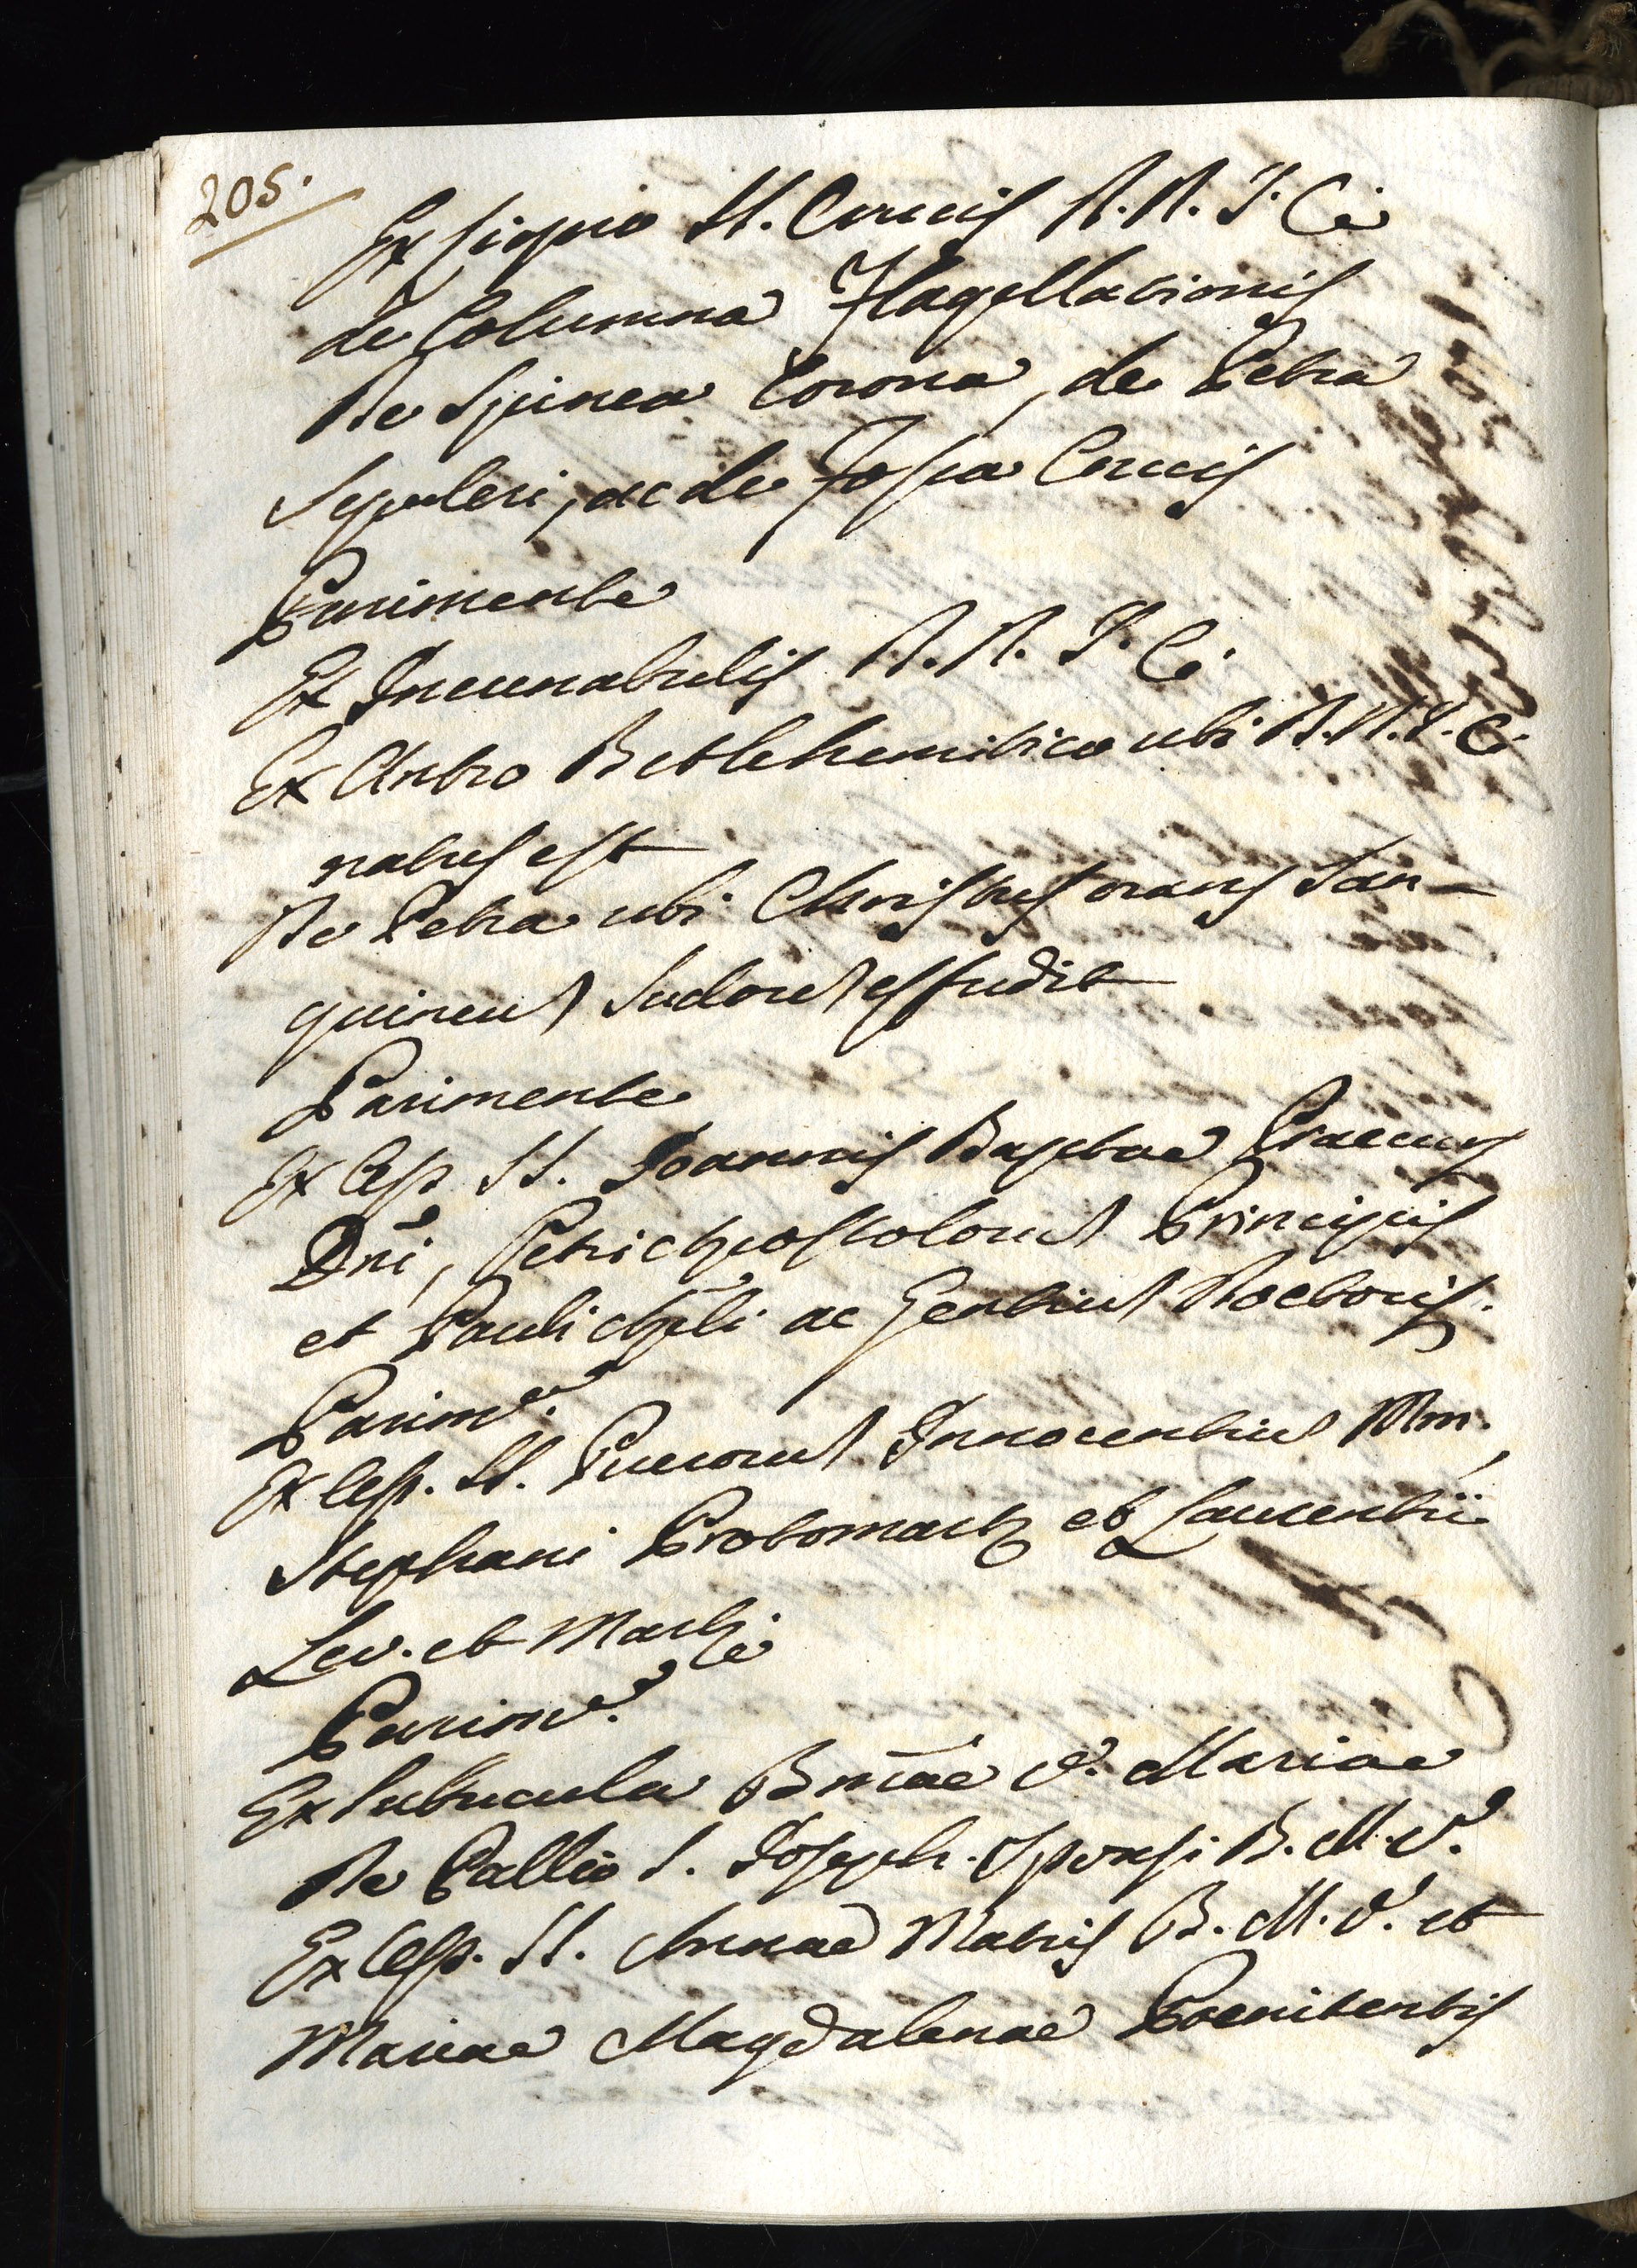 205.
Ex Ligno SS. Crucis D. N. J. C.
de Columna Flagellationis
De Spinea Corona, de Petra
Sepulcri, ac de Fossa Crucis
Parimente
Ex Incunabulis D. N. J. C.
Ex Antro Betlehemitico ubi D. N. J. C.
natus est
De Petra ubi Christus orans San-
guineum Sudorem effudit
Parimente
Ex Ossp SS. Joannis Baptae Praecurs
Dñi, Petri Apostolorum Principis
et Pauli Apli ac Gentium Doctoris.
Parimte.
Ex Ossp. SS. Puerorum Innocentium Mm.,
Stephani Protomart et Laurentii
Lev. et Mart
Parimte.
Ex Subucula Bmae V. Mariae
De Pallio S. Joseph. Sponsi B. M. V.
Ex Ossp. SS. Annae Matris B. M. V. et
Mariae Magdalenae Poenitentis